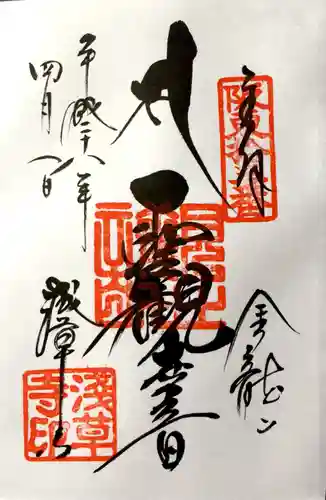 奉拝
坂東拾三番
聖観世音
金龍山
平成二十八年
四月一日
浅草寺
浅草寺印